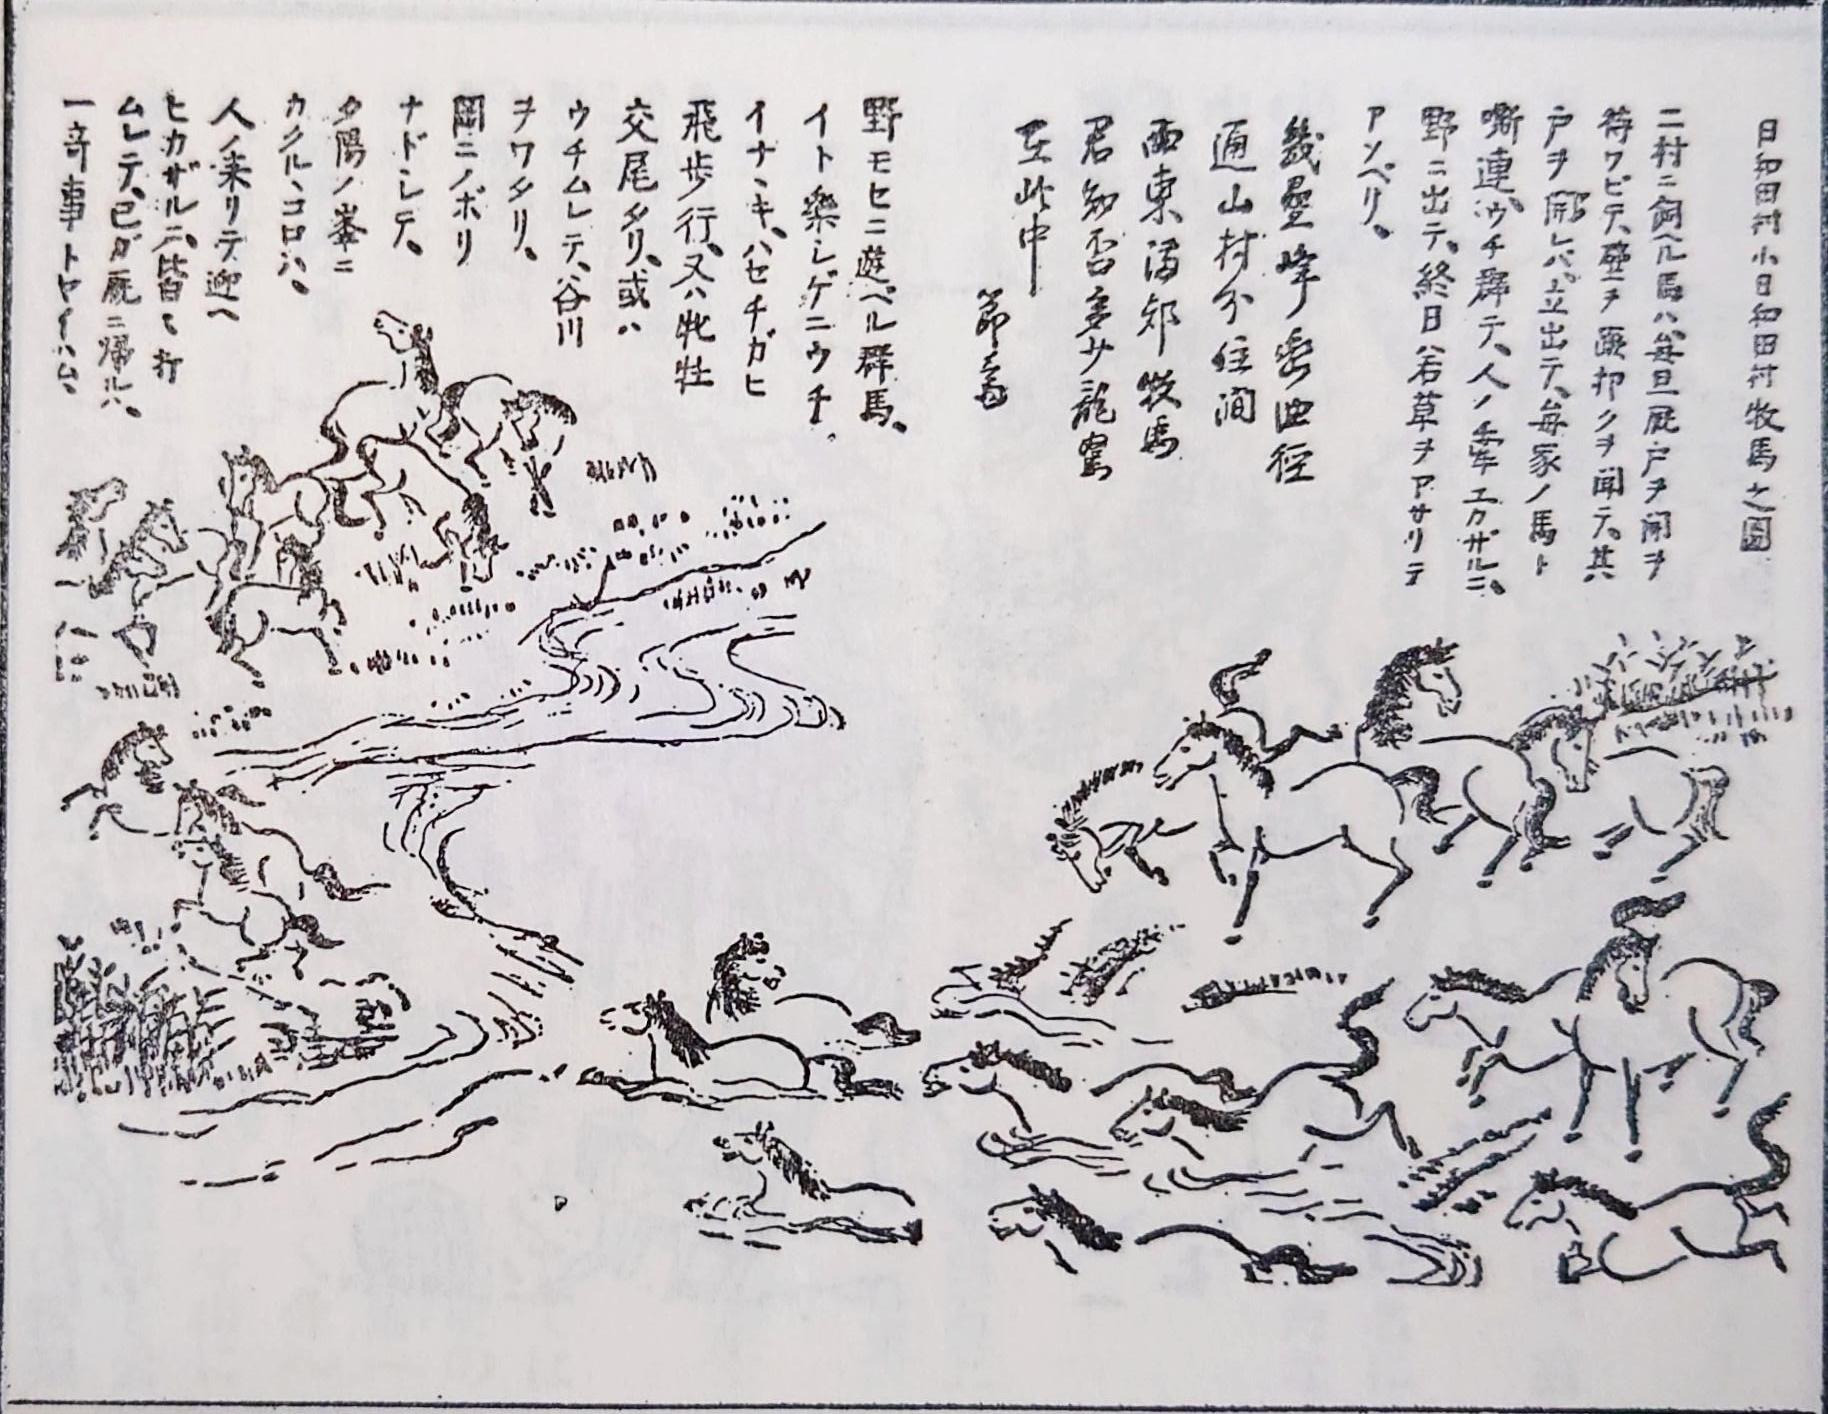 日和田村小日和田村牧馬之圖
二村ニ飼ヘル馬ハ、毎旦厩戸ヲ開ヲ
待ワビテ、壁ヲ蹶扣クヲ聞テ、其
戸ヲ開レバ、立出テ、毎家ノ馬ト
嘶連、ウチ群テ、人ノ牽エガザルニ、
野ニ出テ、終日ハ若草ヲアサリテ
アソベリ、
幾疊峰巒曲徑
通山村分住澗
西東滿郊牧馬
君知否多少龍駒
在此中
野モセニ遊ベル群馬、
イト樂シゲニウチ
イナヽキ、ハセチガヒ
飛歩行、又ハ牝牡
交尾タリ、或ハ
ウチムレテ、谷川
ヲワタリ、
岡ニノボリ
ナドシテ、
夕陽ノ峯ニ
カクルヽコロハ、
人ノ来リテ迎ヘ
ヒカザルニ、皆々打
ムレテ、己ガ厩ニ帰ルハ、
一奇事トヤイハム、